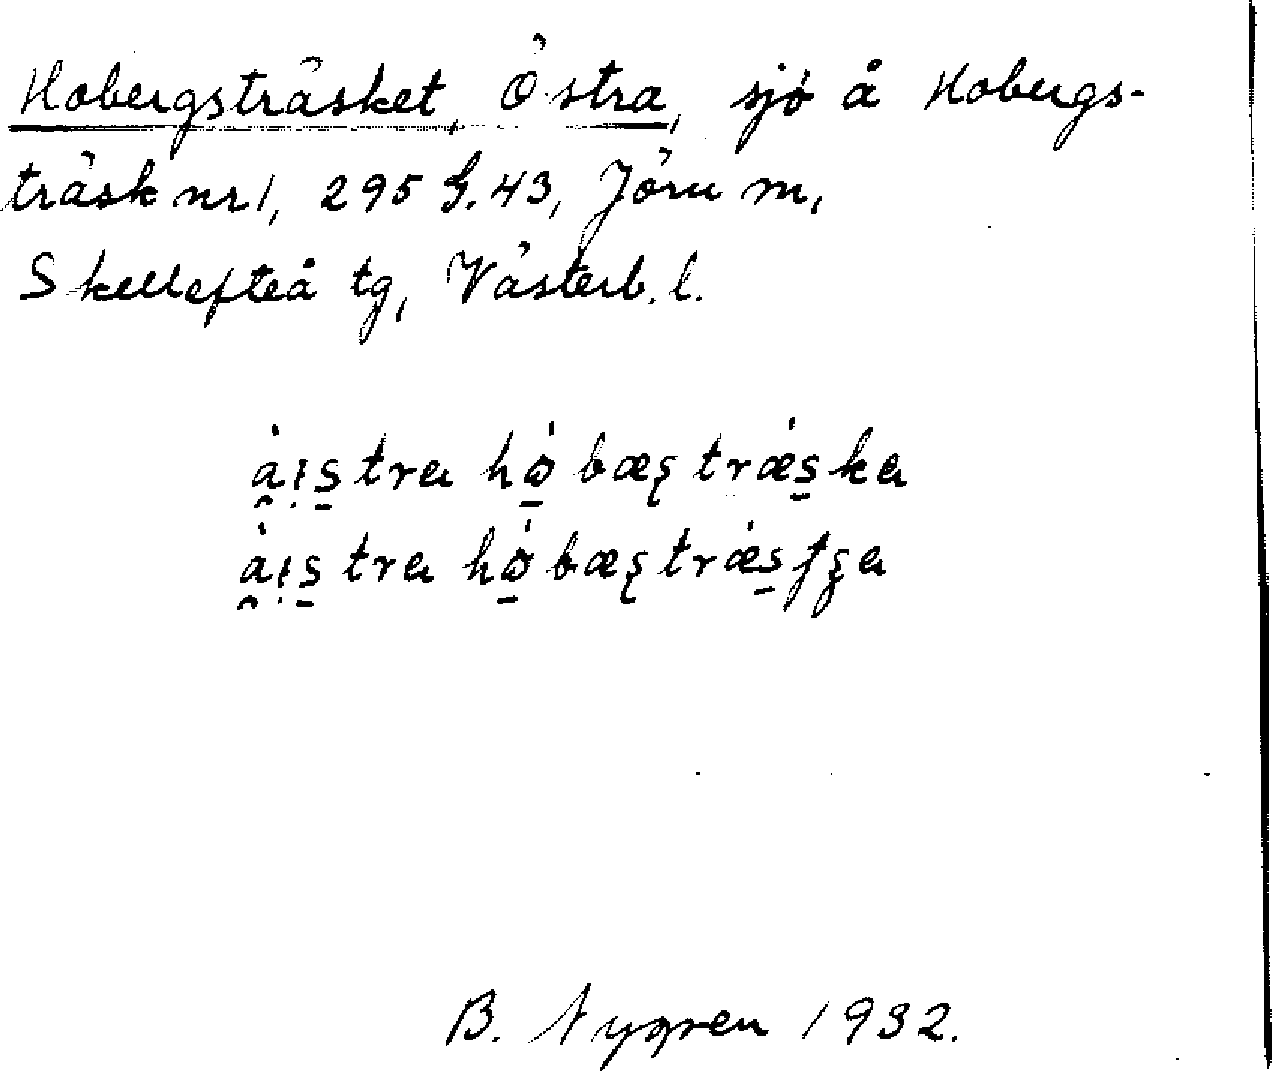 Hobergsträsket, Östra, sjö å Hobergs-
träsk nr 1, 295 G. 43, Jörn m,
Skellefteå tg, Västerb. l.
å̯i̩s̠tra hö̠bæʂtrǽs̠ka
å̯i̩s̠tra hö̠bæʂtrǽs̠ʃʂa
B. Nygren 1932.